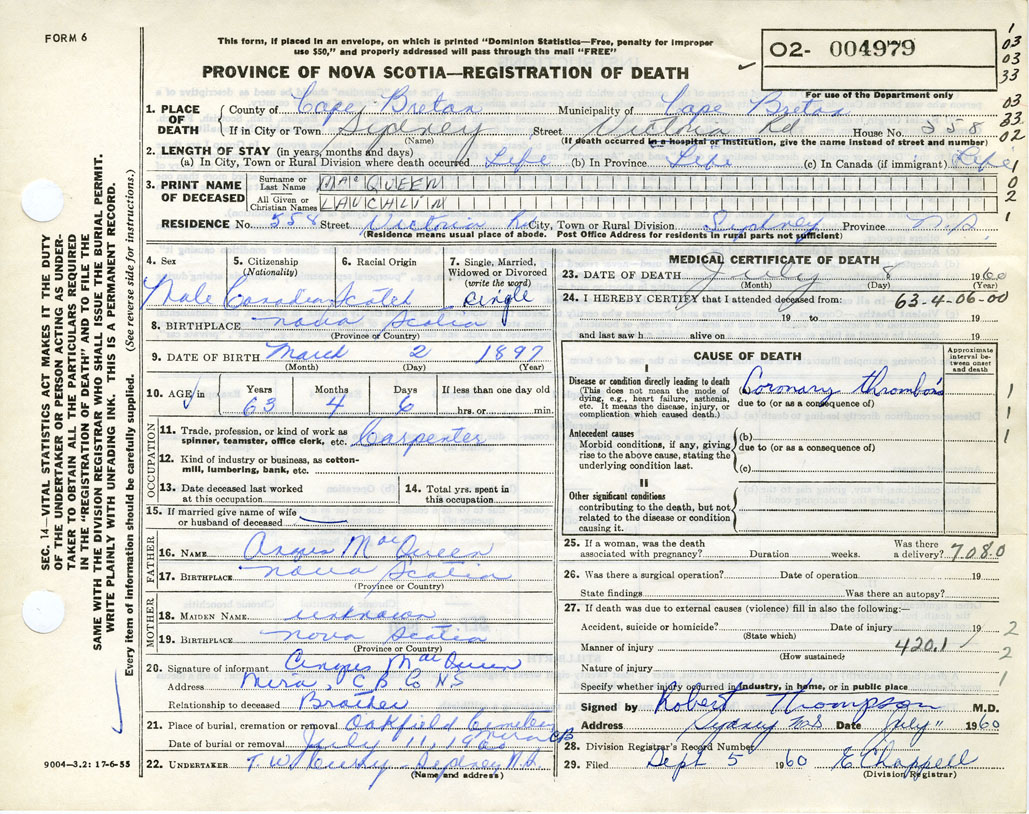 FORM 6
This form, if placed in an envelope, on which is printed "Dominion Statistics—Free, penalty for improper
use $50," and properly addressed will pass through the mail "FREE"
PROVINCE OF NOVA SCOTIA—REGISTRATION OF DEATH
02- 004979
For use of the Department only
1. PLACE OF DEATH { County of Cape Breton Municipality of Cape Breton
If in City or Town Sydney Street Victoria Rd House No. 558
(Name) (If death occurred in a hospital or institution, give the name instead of street and number)
2. LENGTH OF STAY (in years, months and days)
(a) In City, Town or Rural Division where death occurred Life (b) In Province Life (c) In Canada (if immigrant) Life
3. PRINT NAME OF DECEASED { Surname or Last Name MacQUEEN
All Given or Christian Names LAUCHLIN
RESIDENCE No. 558 Street Victoria Rd City, Town or Rural Division Sydney Province N.S.
(Residence means usual place of abode. Post Office Address for residents in rural parts not sufficient)
4. Sex Male
5. Citizenship (Nationality) Canadian
6. Racial Origin Scotch
7. Single, Married, Widowed or Divorced (write the word) Single
8. BIRTHPLACE Nova Scotia
(Province or Country)
9. DATE OF BIRTH March 2 1897
(Month) (Day) (Year)
10. AGE in Years 63 Months 4 Days 6 If less than one day old
hrs. or min.
OCCUPATION
11. Trade, profession, or kind of work as spinner, teamster, office clerk, etc. Carpenter
12. Kind of industry or business, as cotton-mill, lumbering, bank, etc.
13. Date deceased last worked at this occupation
14. Total yrs. spent in this occupation
15. If married give name of wife or husband of deceased
FATHER
16. NAME Angus MacQueen
17. BIRTHPLACE Nova Scotia
(Province or Country)
MOTHER
18. MAIDEN NAME unknown
19. BIRTHPLACE Nova Scotia
(Province or Country)
20. Signature of informant Angus MacQueen
Address Mira, C.B. Co NS
Relationship to deceased Brother
21. Place of burial, cremation or removal Oakfield Cemetery Mira CB
Date of burial or removal July 11, 1960
22. UNDERTAKER T. W. Curry - Sydney N.S.
(Name and address)
MEDICAL CERTIFICATE OF DEATH
23. DATE OF DEATH July 8 1960
(Month) (Day) (Year)
24. I HEREBY CERTIFY that I attended deceased from: 63-4-06-00
19 to 19
and last saw h alive on 19
CAUSE OF DEATH
Approximate interval between onset and death
I
Disease or condition directly leading to death
(This does not mean the mode of dying, e.g., heart failure, asthenia, etc. It means the disease, injury, or complication which caused death.)
Coronary thrombosis
due to (or as a consequence of)
Antecedent causes
Morbid conditions, if any, giving rise to the above cause, stating the underlying condition last.
(b)
due to (or as a consequence of)
(c)
II
Other significant conditions
contributing to the death, but not related to the disease or condition causing it.
25. If a woman, was the death associated with pregnancy? Duration weeks. Was there a delivery? 7080
26. Was there a surgical operation? Date of operation 19
State findings Was there an autopsy?
27. If death was due to external causes (violence) fill in also the following:—
Accident, suicide or homicide? Date of injury 19
(State which)
Manner of injury 420.1
(How sustained)
Nature of injury
Specify whether injury occurred in industry, in home, or in public place
Signed by Robert Thompson M.D.
Address Sydney NS Date July 11 1960
28. Division Registrar's Record Number
29. Filed Sept 5 1960 E Chappell
(Division Registrar)
SEC. 14—VITAL STATISTICS ACT MAKES IT THE DUTY
OF THE UNDERTAKER OR PERSON ACTING AS UNDER-
TAKER TO OBTAIN ALL THE PARTICULARS REQUIRED
IN THE "REGISTRATION OF DEATH" AND TO FILE THE
SAME WITH THE DIVISION REGISTRAR WHO SHALL ISSUE THE BURIAL PERMIT.
WRITE PLAINLY WITH UNFADING INK. THIS IS A PERMANENT RECORD.
Every item of information should be carefully supplied. (See reverse side for instructions.)
9004—3.2: 17-6-55
1
03
03
33
03
33
02
1
0
2
1
1
1
1
2
2
1